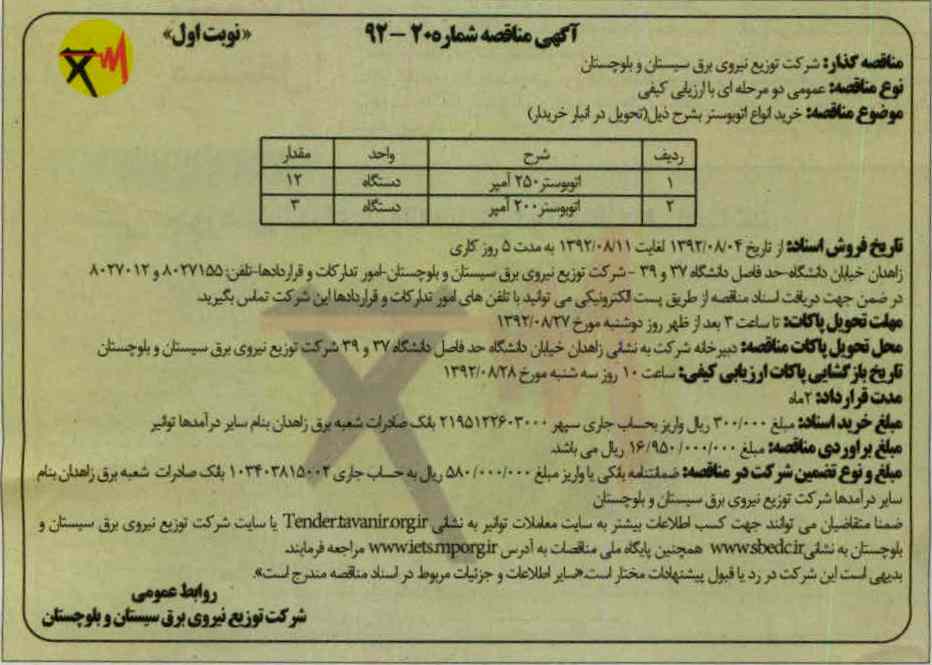 آگهی مناقصه شماره ۲۰ – ۹۲ «نوبت اول»
مناقصه گذار: شرکت توزیع نیروی برق سیستان و بلوچستان
نوع مناقصه: عمومی دو مرحله ای با ارزیابی کیفی
موضوع مناقصه: خرید انواع اتوبوستر بشرح ذیل(تحویل در انبار خریدار)
ردیف شرح واحد مقدار
۱ اتوبوستر ۲۵۰ آمپر دستگاه ۱۲
۲ اتوبوستر ۲۰۰ آمپر دستگاه ۳
تاریخ فروش اسناد: از تاریخ ۱۳۹۲/۰۸/۰۴ لغایت ۱۳۹۲/۰۸/۱۱ به مدت ۵ روز کاری
زاهدان خیابان دانشگاه-حد فاصل دانشگاه ۳۷ و ۳۹ - شرکت توزیع نیروی برق سیستان و بلوچستان-امور تدارکات و قراردادها-تلفن: ۸۰۲۷۱۵۵ و ۸۰۲۷۰۱۲
در ضمن جهت دریافت اسناد مناقصه از طریق پست الکترونیکی می توانید با تلفن های امور تدارکات و قراردادها این شرکت تماس بگیرید.
مهلت تحویل پاکات: تا ساعت ۳ بعد از ظهر روز دوشنبه مورخ ۱۳۹۲/۰۸/۲۷
محل تحویل پاکات مناقصه: دبیرخانه شرکت به نشانی زاهدان خیابان دانشگاه حد فاصل دانشگاه ۳۷ و ۳۹ شرکت توزیع نیروی برق سیستان و بلوچستان
تاریخ بازگشایی پاکات ارزیابی کیفی: ساعت ۱۰ روز سه شنبه مورخ ۱۳۹۲/۰۸/۲۸
مدت قرارداد: ۲ماه
مبلغ خرید اسناد: مبلغ ۳۰۰/۰۰۰ ریال واریز بحساب جاری سپهر ۲۱۹۵۱۲۲۶۰۳۰۰۰ بانک صادرات شعبه برق زاهدان بنام سایر درآمدها توانیر
مبلغ براوردی مناقصه: مبلغ ۱۶/۹۵۰/۰۰۰/۰۰۰ ریال می باشد.
مبلغ و نوع تضمین شرکت در مناقصه: ضمانتنامه بانکی یا واریز مبلغ ۵۸۰/۰۰۰/۰۰۰ ریال به حساب جاری ۱۰۳۴۰۳۸۱۵۰۰۲ بانک صادرات شعبه برق زاهدان بنام
سایر درآمدها شرکت توزیع نیروی برق سیستان و بلوچستان
ضمنا متقاضیان می توانند جهت کسب اطلاعات بیشتر به سایت معاملات توانیر به نشانی Tender.tavanir.org.ir یا سایت شرکت توزیع نیروی برق سیستان و
بلوچستان به نشانی www.sbedc.ir همچنین پایگاه ملی مناقصات به آدرس www.iets.mporg.ir مراجعه فرمایند.
بدیهی است این شرکت در رد یا قبول پیشنهادات مختار است.«سایر اطلاعات و جزئیات مربوط در اسناد مناقصه مندرج است».
روابط عمومی
شرکت توزیع نیروی برق سیستان و بلوچستان